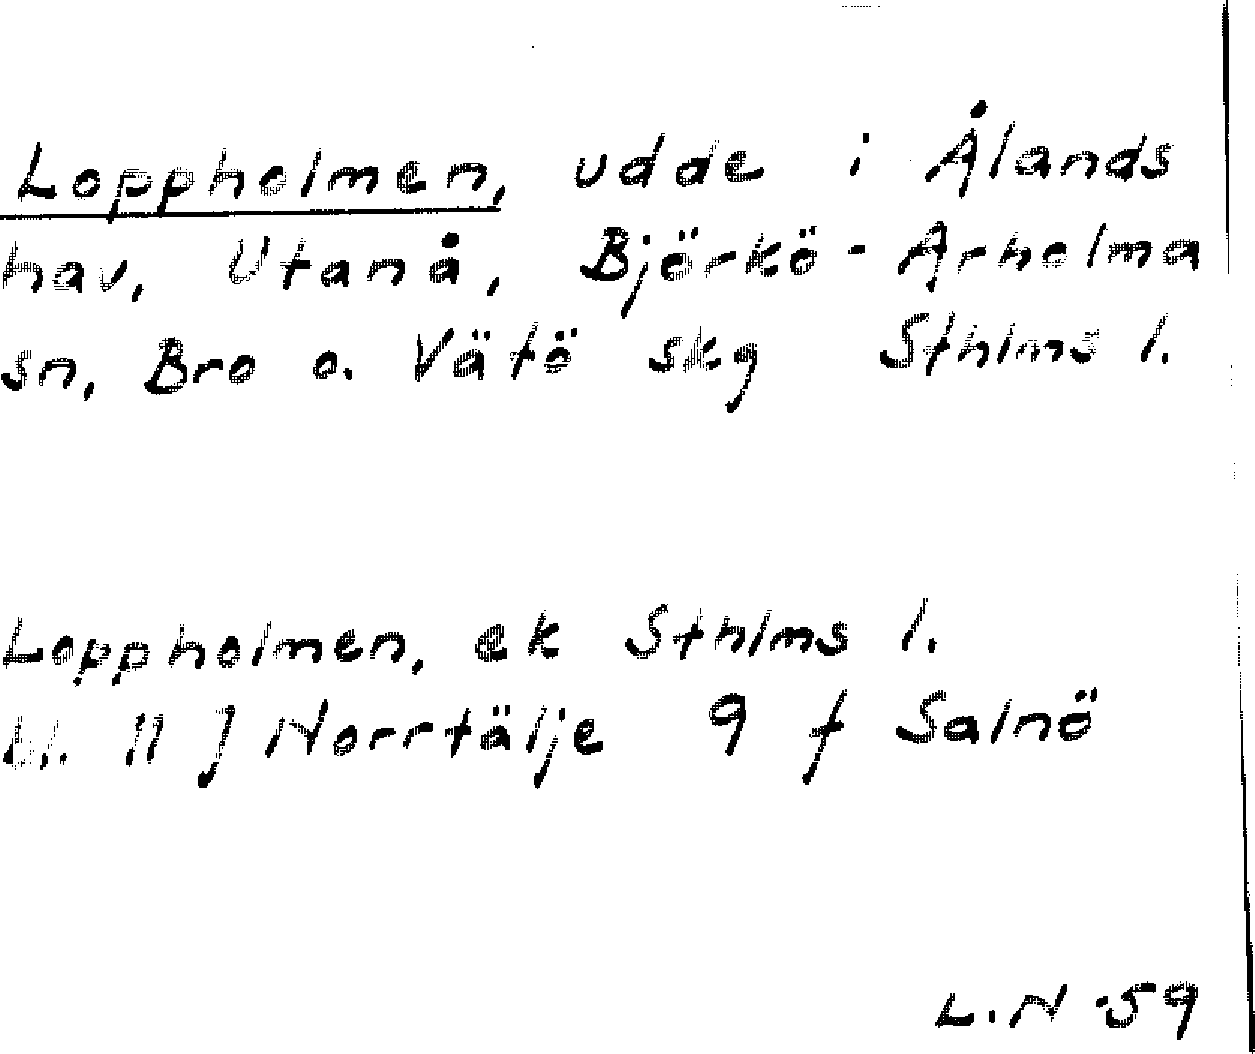 Loppholmen, udde i Ålands
hav, Utanå, Björkö-Arholma
sn, Bro o. Vätö skg Sthlms l.
Loppholmen, ek Sthlms l.
bl. 11 J Norrtälje 9 f Salnö
L.N -59